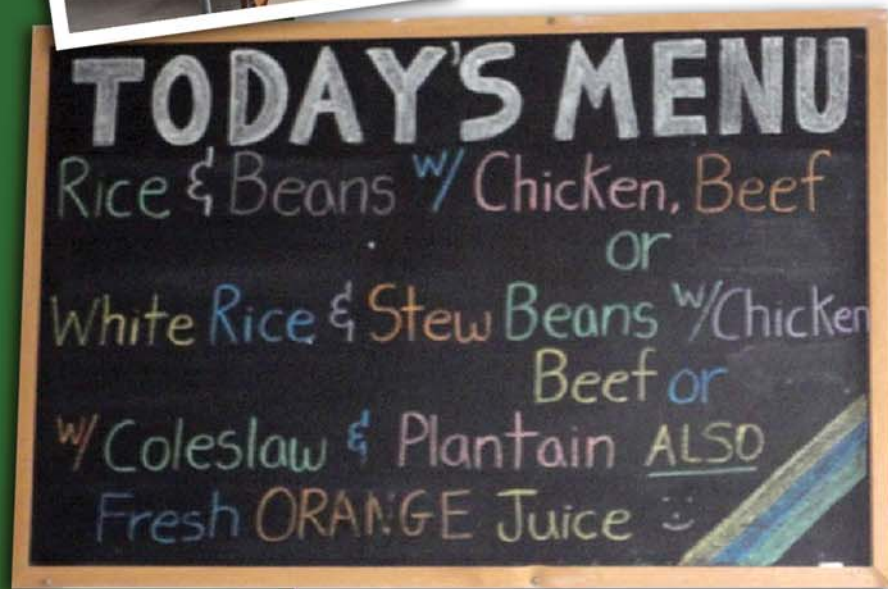 TODAY'S MENU
Rice & Beans w/ Chicken, Beef
or
White Rice & Stew Beans w/Chicken
Beef or
w/ Coleslaw & Plantain ALSO
Fresh ORANGE Juice